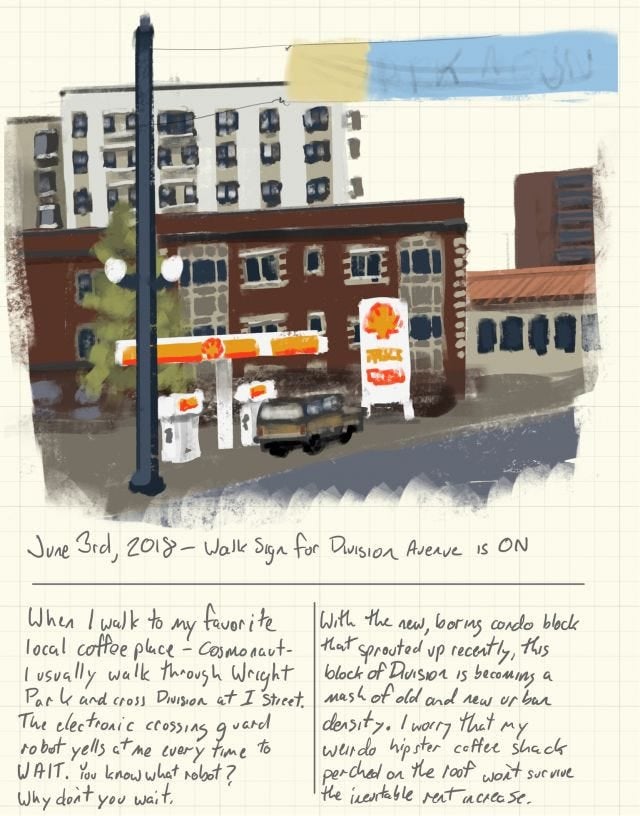 June 3rd, 2018 – Walk Sign for Division Avenue is ON
When I walk to my favorite
local coffee place – Cosmonaut –
I usually walk through Wright
Park and cross Division at I Street.
The electronic crossing guard
robot yells at me every time to
WAIT. You know what robot?
Why don't you wait.
With the new, boring condo block
that sprouted up recently, this
block of Division is becoming a
mash of old and new urban
density. I worry that my
weirdo hipster coffee shack
perched on the roof won't survive
the inevitable rent increase.